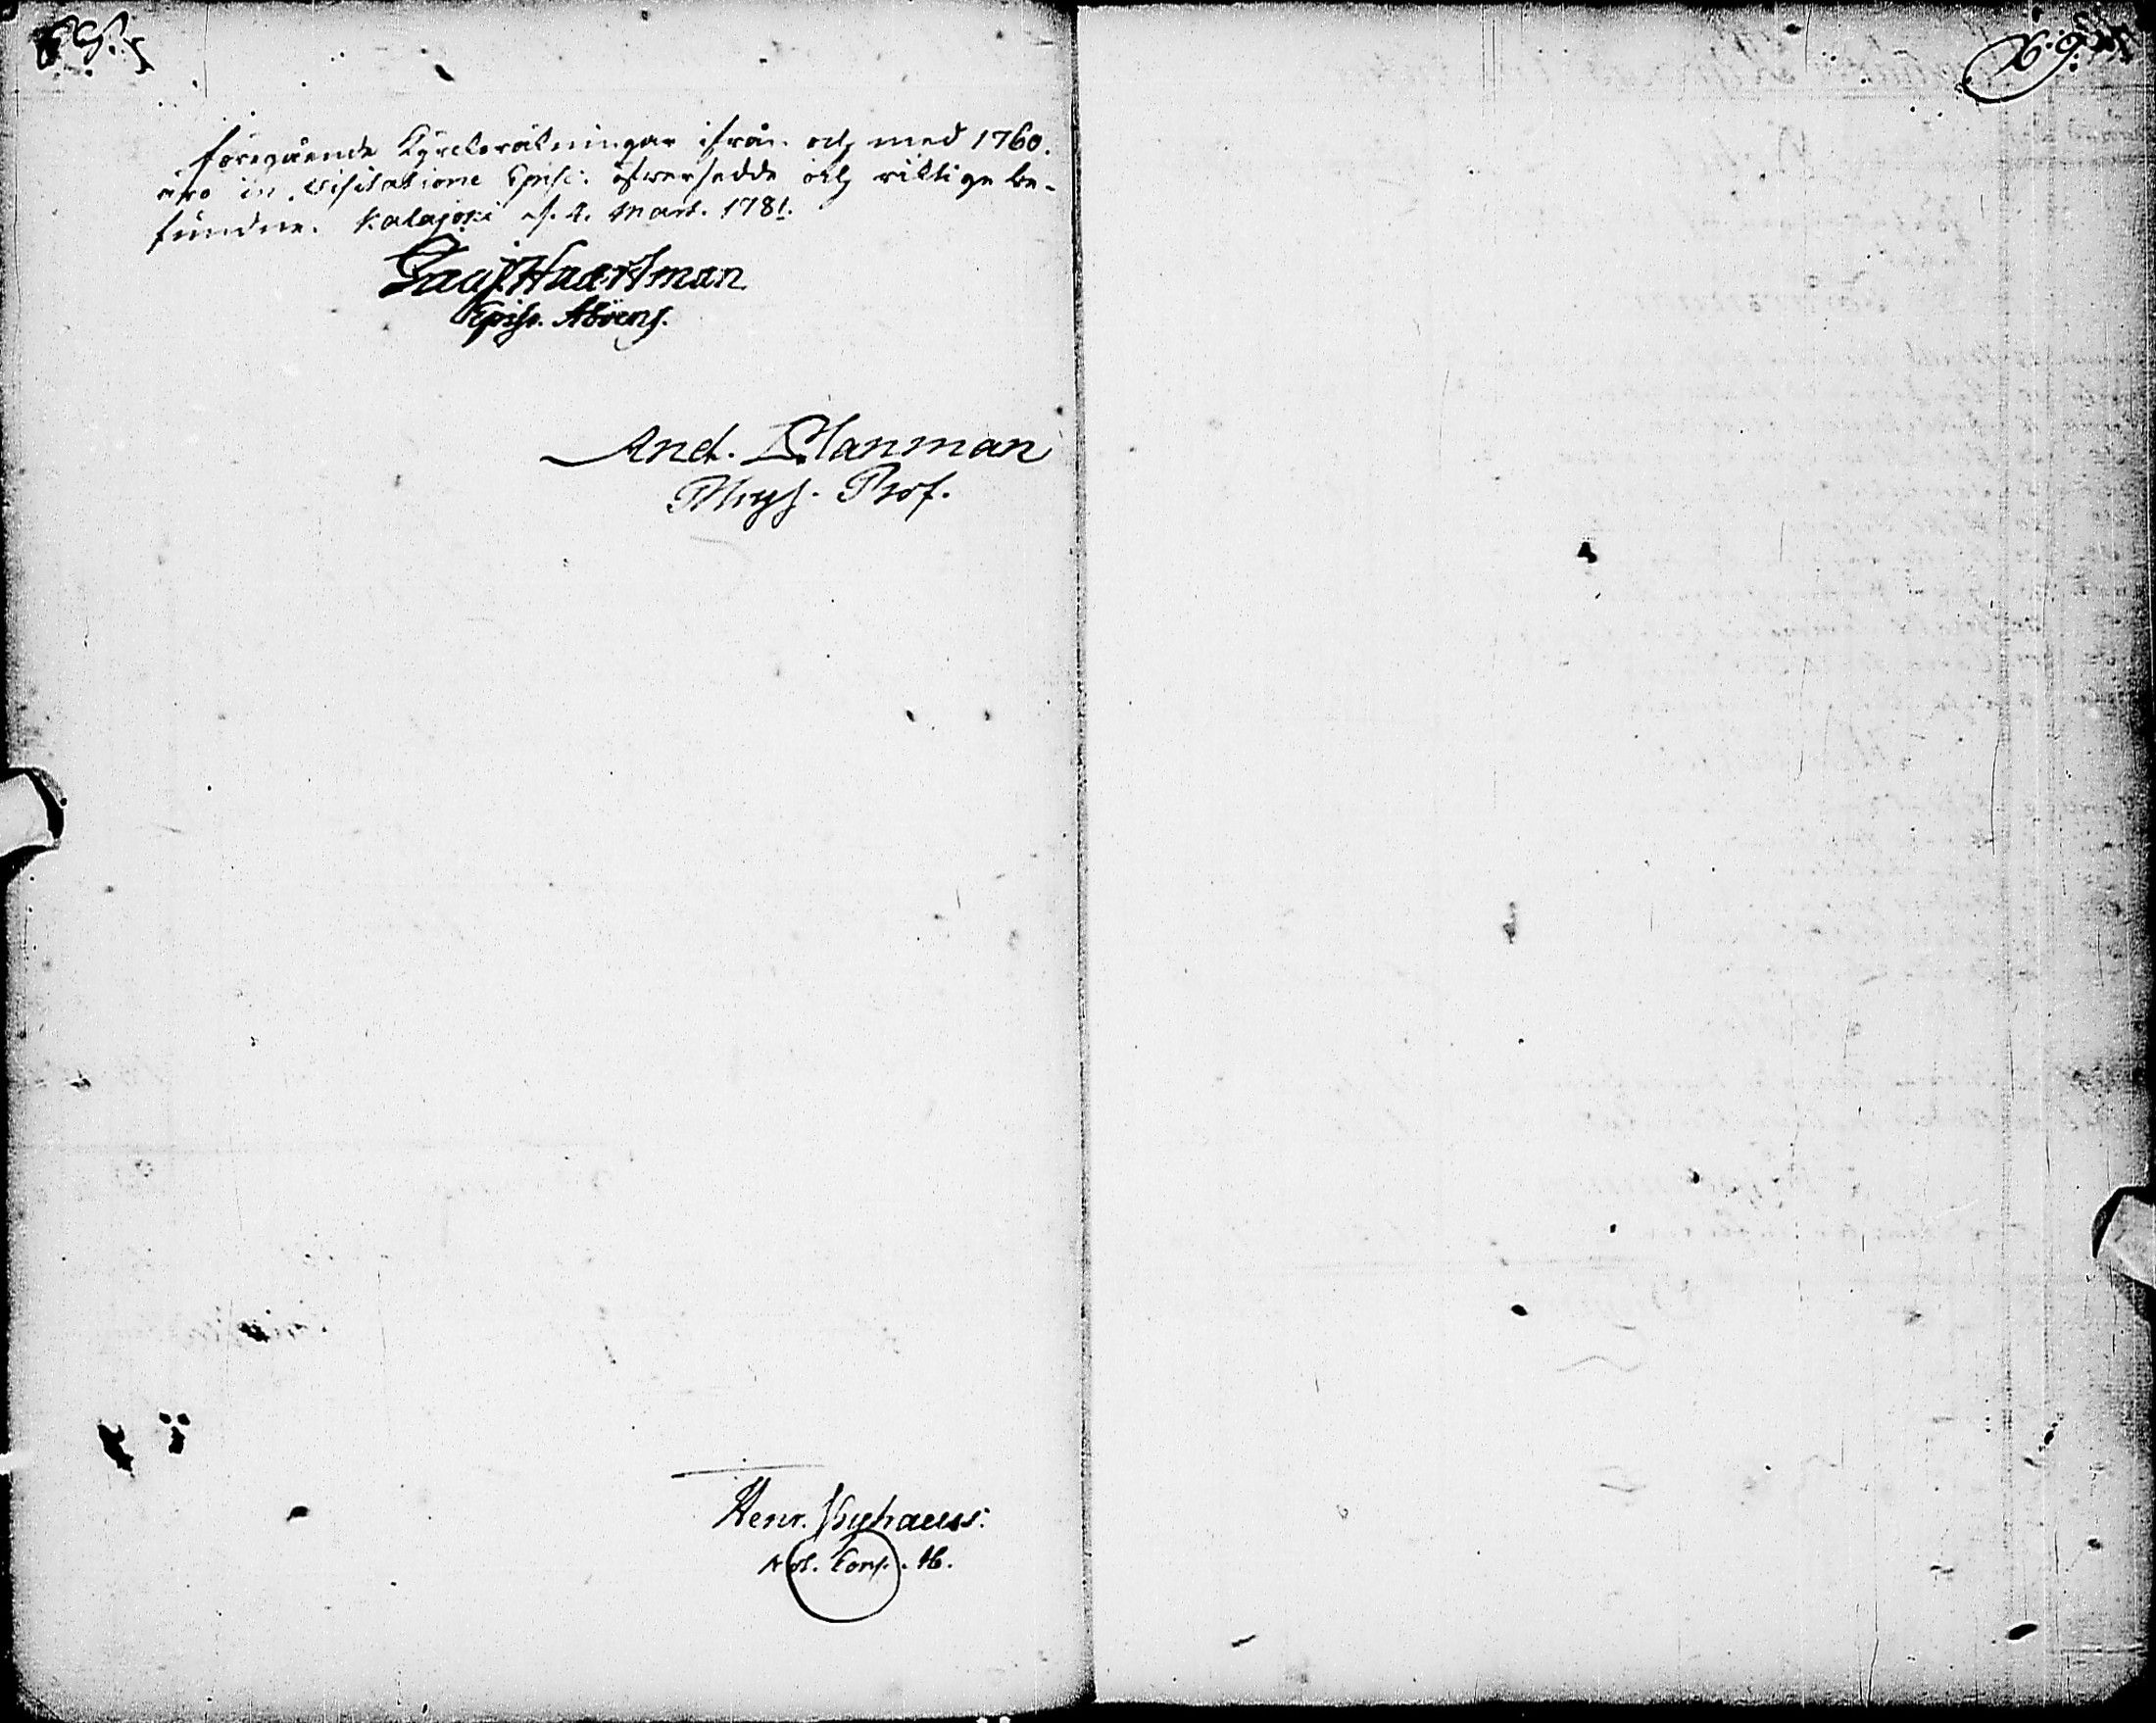 föregående Kyrckoräkningar ifrån och med 1760.
äro in Visitatione Episc: öfwersedde och riktige be-
fundne. Kalajoki d. 4. Mart. 1781.
Jac. Haartman
Episc. Aboens.
And. Planman
Phys. Prof.
Henr.
Not. Cons.